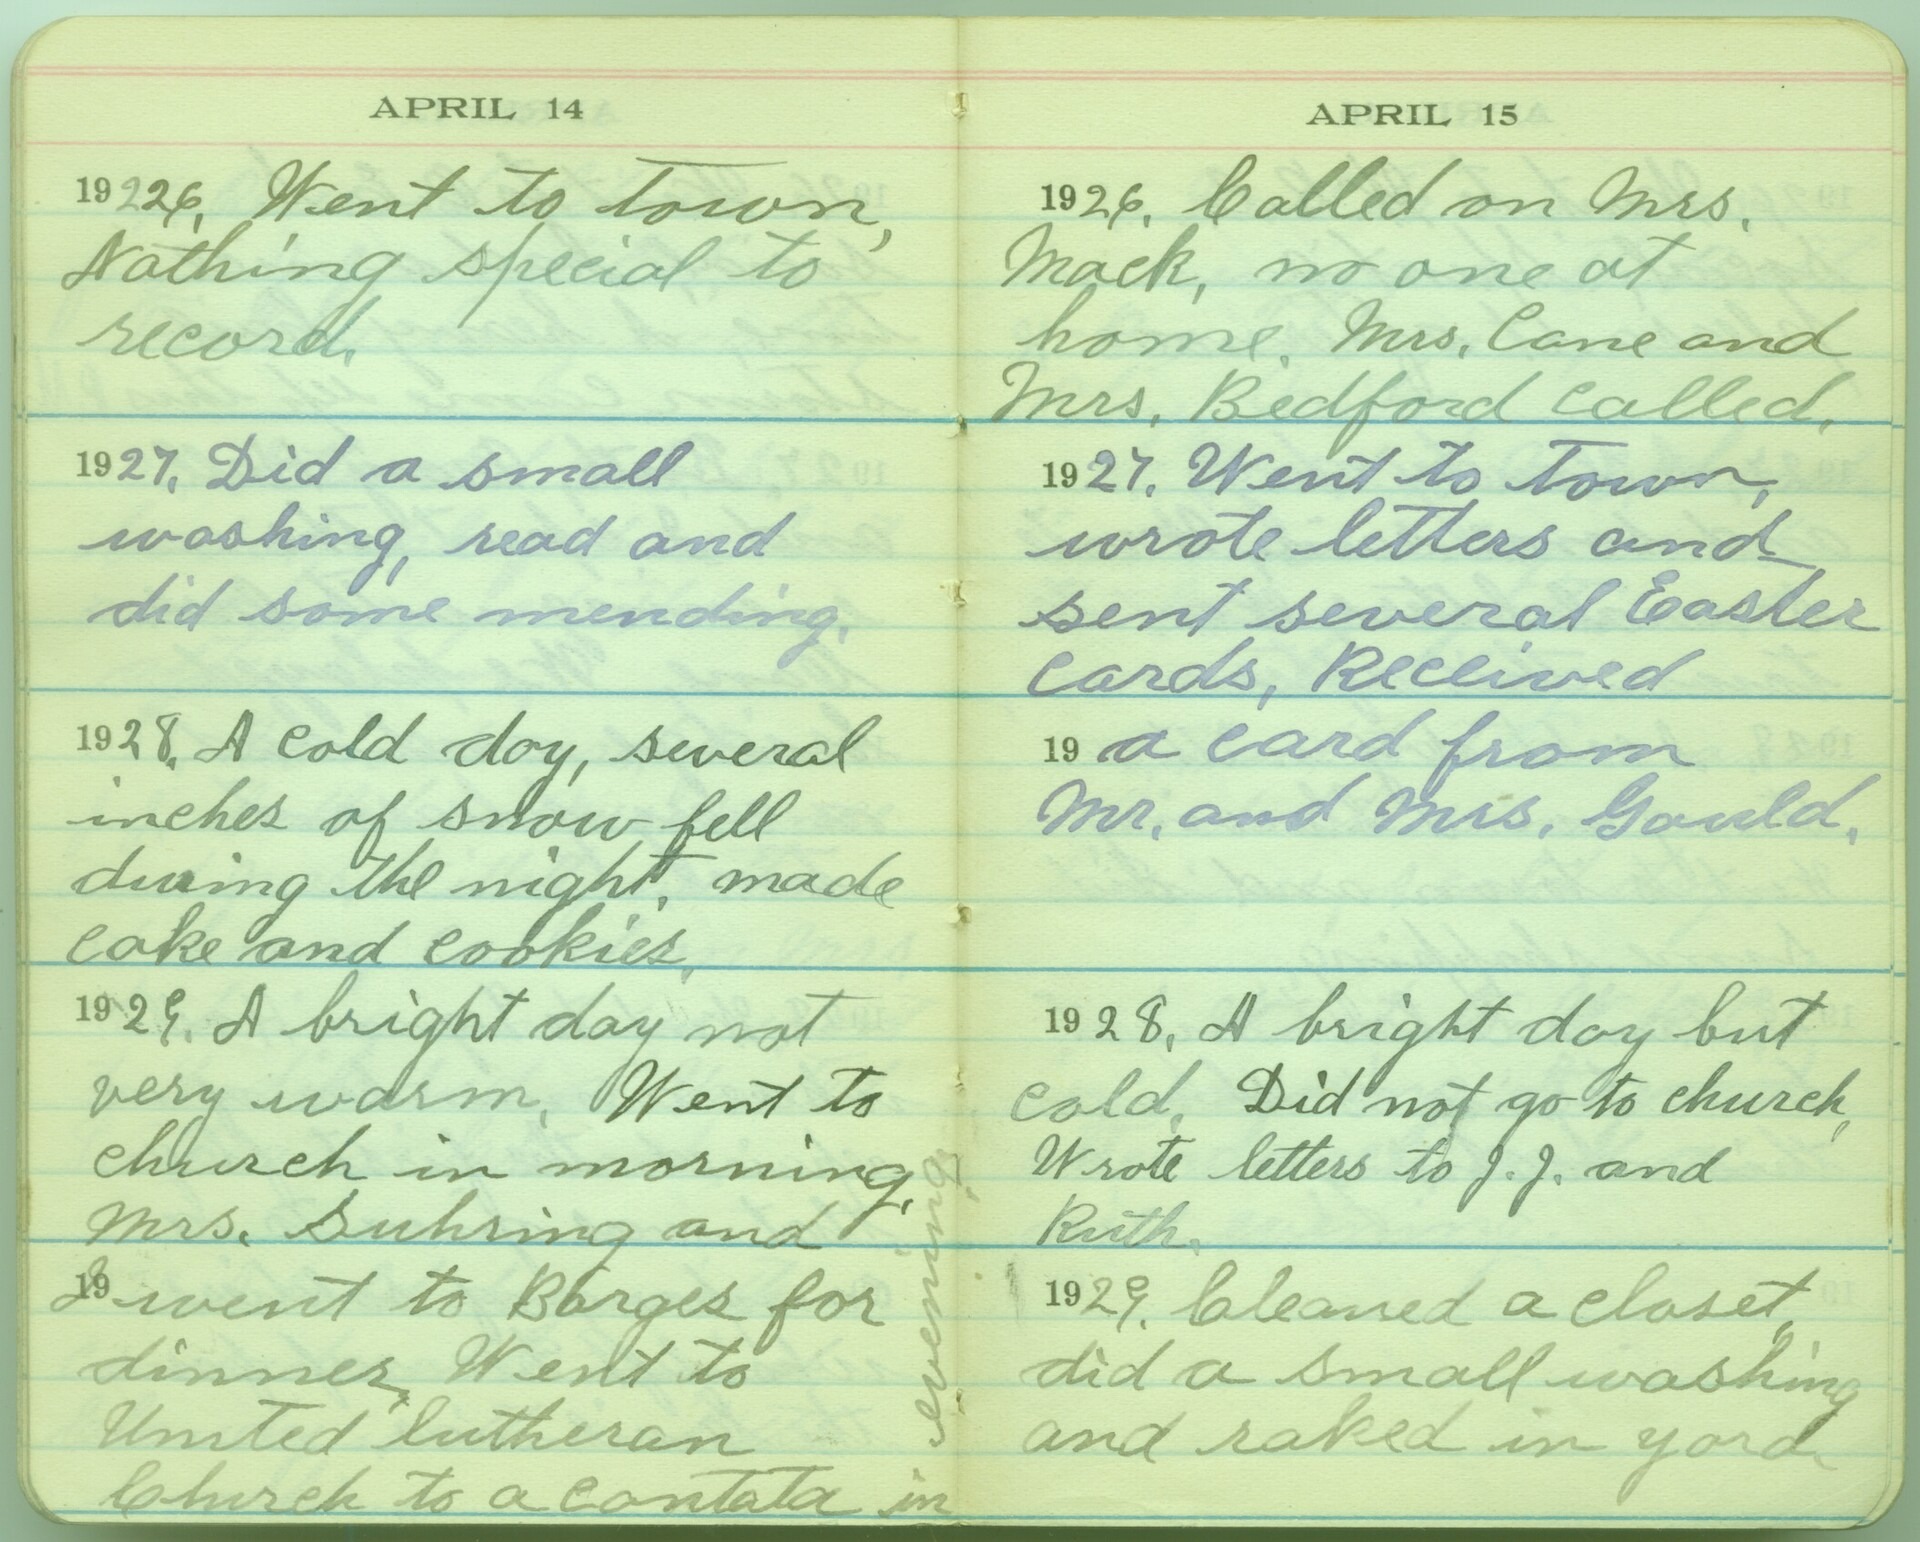 APRIL 14
19226. Went to town,
Nothing special to
record.
1927. Did a small
washing, read and
did some mending.
1928. A cold day, several
inches of snow fell
during the night, made
cake and cookies.
1929. A bright day not
very warm. Went to
church in morning.
Mrs. Suhring and
19 I went to Barges for
dinner. Went to
United Lutheran
Church to a cantata in
evening.
APRIL 15
1926. Called on Mrs.
Mack, no one at
home. Mrs. Cane and
Mrs. Bedford called.
1927. Went to town,
wrote letters and
sent several Easter
cards, Received
19 a card from
Mr. and Mrs. Gould.
1928. A bright day but
cold. Did not go to church,
Wrote letters to J. J. and
Ruth.
1929. Cleaned a closet,
did a small washing
and raked in yard